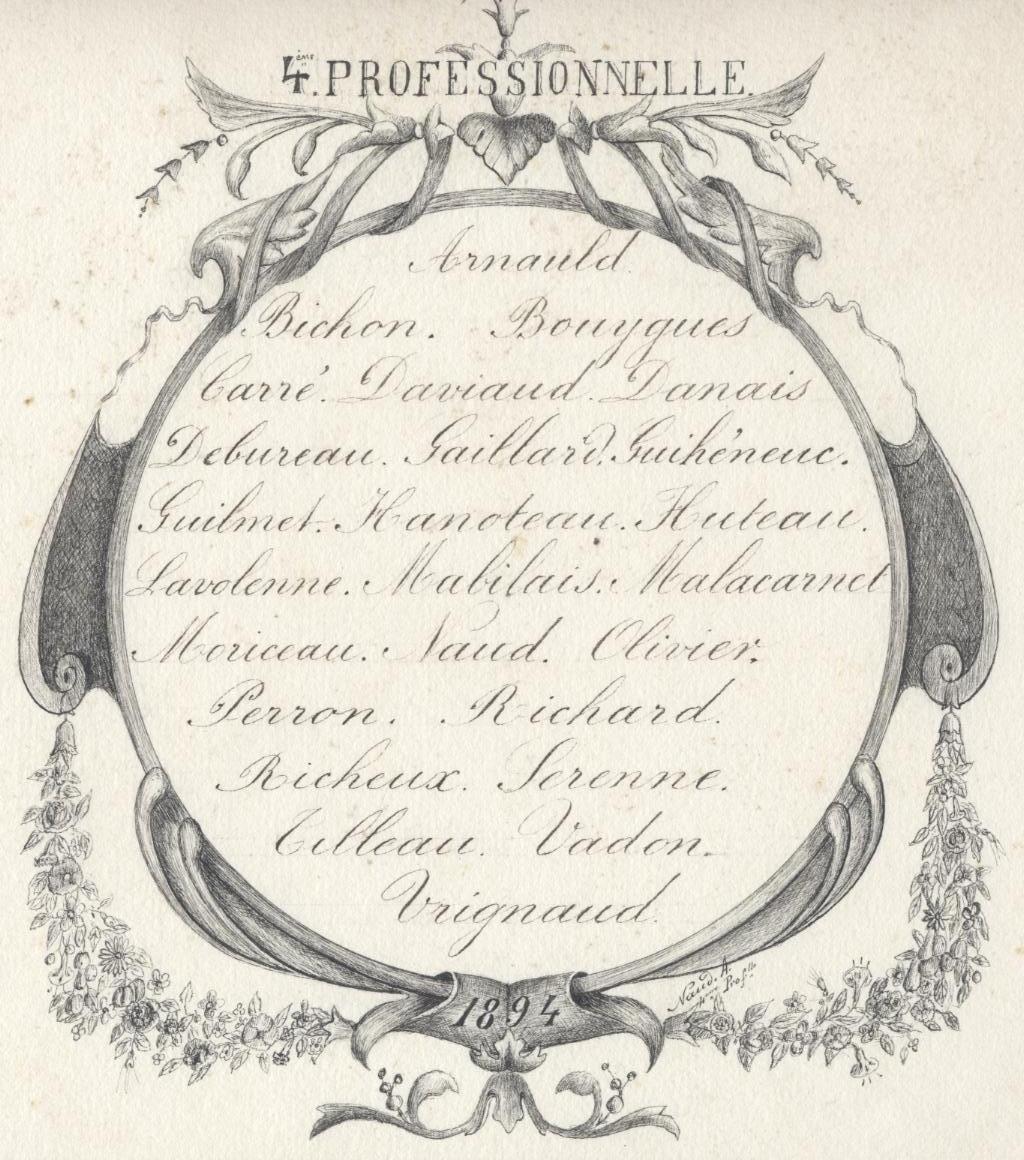 4ème. PROFESSIONNELLE.
Arnauld.
Bichon. Bouygues
Carré. Daviaud. Danais
Debureau. Gaillard. Guihéneuc.
Guilmet. Hanoteau. Huteau.
Lavolenne. Mabilais. Malacarnet
Moriceau. Naud. Olivier.
Perron. Richard.
Richeux. Serenne.
Tilleau. Vadon.
Vrignaud.
Naud. A.
4e Prof.lle
1894